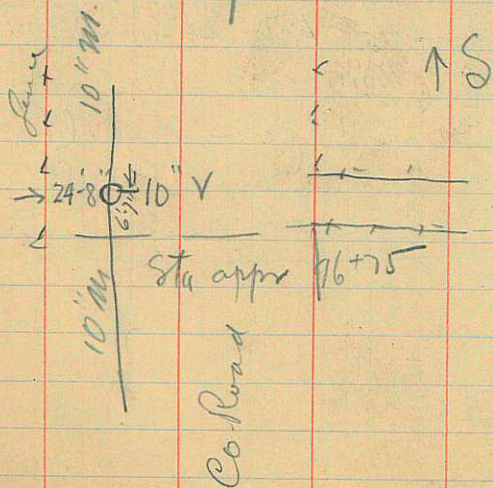 Fence
10" M.
↑ S
24'-8" 10" V
10" M
Sta appr 96+75
Co. Road